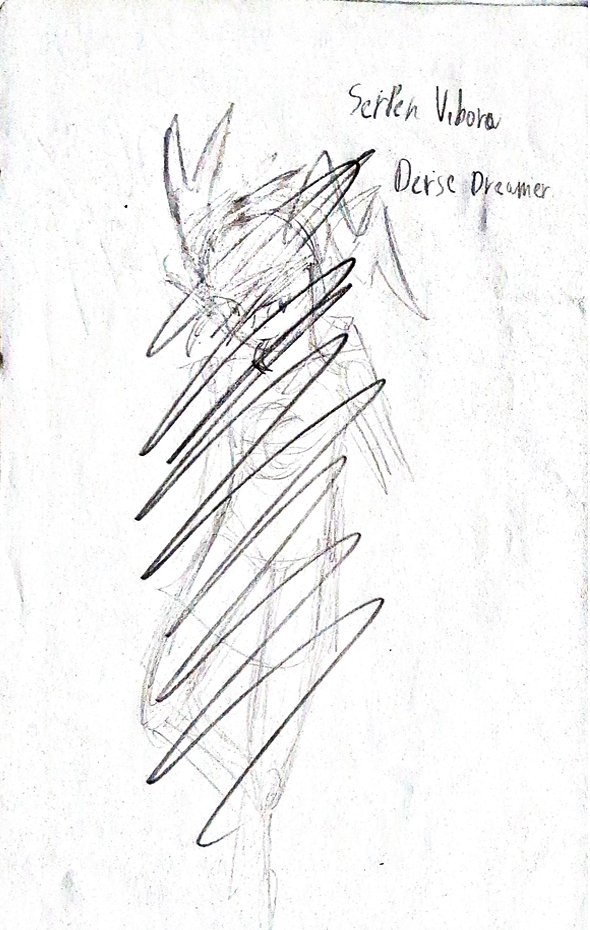 Serpen Vibora
Derse Dreamer